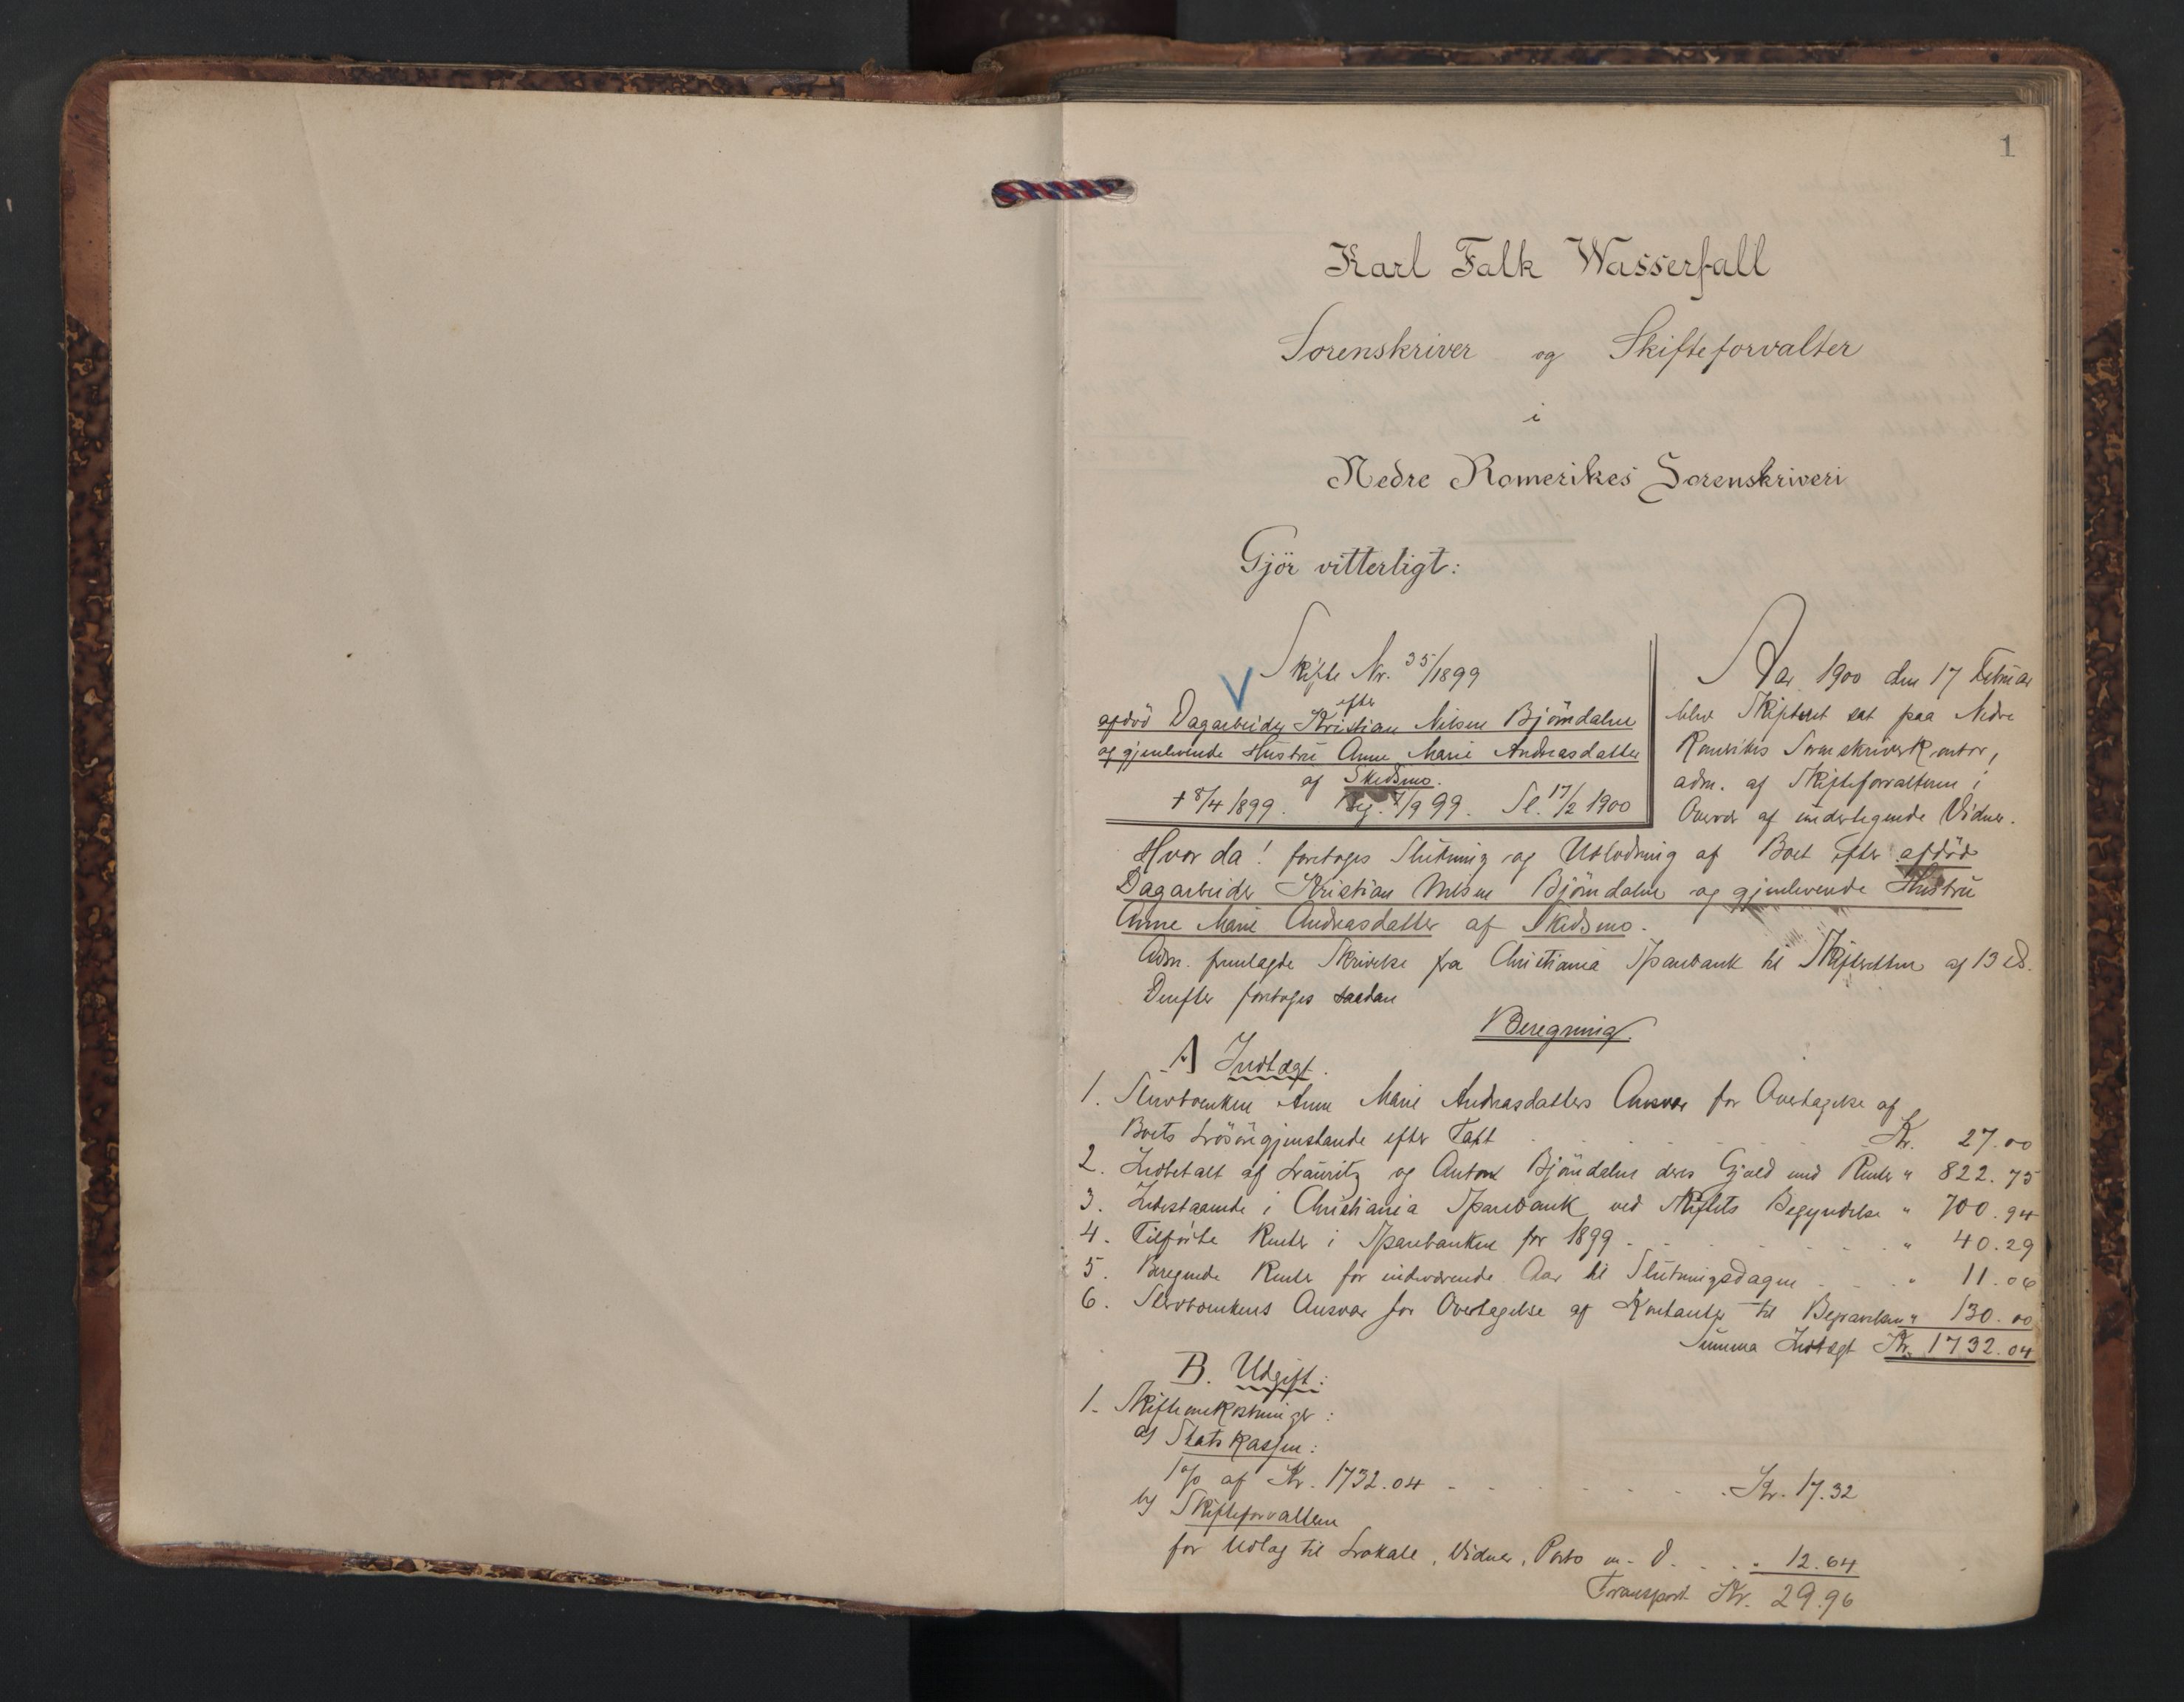 1
Karl Falk Wasserfall
Sorenskriver og Skifteforvalter
i
Nedre Romerikes Sorenskriveri
Gjör vitterligt:
Skifte Nr. 35/1899
efter
afdöd Dagarbeider Kristian Nilsen Bjömdalen
og gjenlevende Hustru Anne Marie Andreasdatter
af Skedsmo.
† 8/4 1899. Beg. 7/9 99. Sl. 17/2 1900
Aar 1900 den 17 Februar
blev Skifteret sat paa Nedre
Romerikes Sorenskriverkontor,
adm. af Skifteforvalteren i
Overvær af undertegnede Vidner.
Hvor da! foretoges Slutning og Udlodning af Boet efter afdöd
Dagarbeider Kristian Nilsen Bjömdalen og gjenlevende Hustru
Anne Marie Andreasdatter af Skedsmo.
Adm. fremlagde Skrivelse fra Christiania Sparebank til Skifteretten af 13 ds.
Derefter foretoges saadan
Beregning.
A Indtægt.
1. Stervboenken Anne Marie Andreasdatters Ansvar for Overtagelse af
Boets Lösöregjenstande efter Taxt Kr. 27.00
2. Indbetalt af Lauritz og Anton Bjömdalen deres Gjæld med Renter " 822.75
3. Indestaaende i Christiania Sparebank ved Skiftets Begyndelse " 700.94
4. Tilförte Renter i Sparebanken for 1899 " 40.29
5. Beregnede Renter for indeværende Aar til Slutningsdagen " 11.06
6. Stervboenkens Ansvar for Overtagelse af Kontanter til Begravelsen " 130.00
Summa Indtægt Kr. 1732.04
B. Udgift:
1. Skifteomkostninger:
a) Statskassen:
1% af Kr. 1732.04 Kr. 17.32
b) Skifteforvalteren
for Udlæg til Lokale, Vidner, Porto m. v. " 12.64
Transport Kr. 29.96